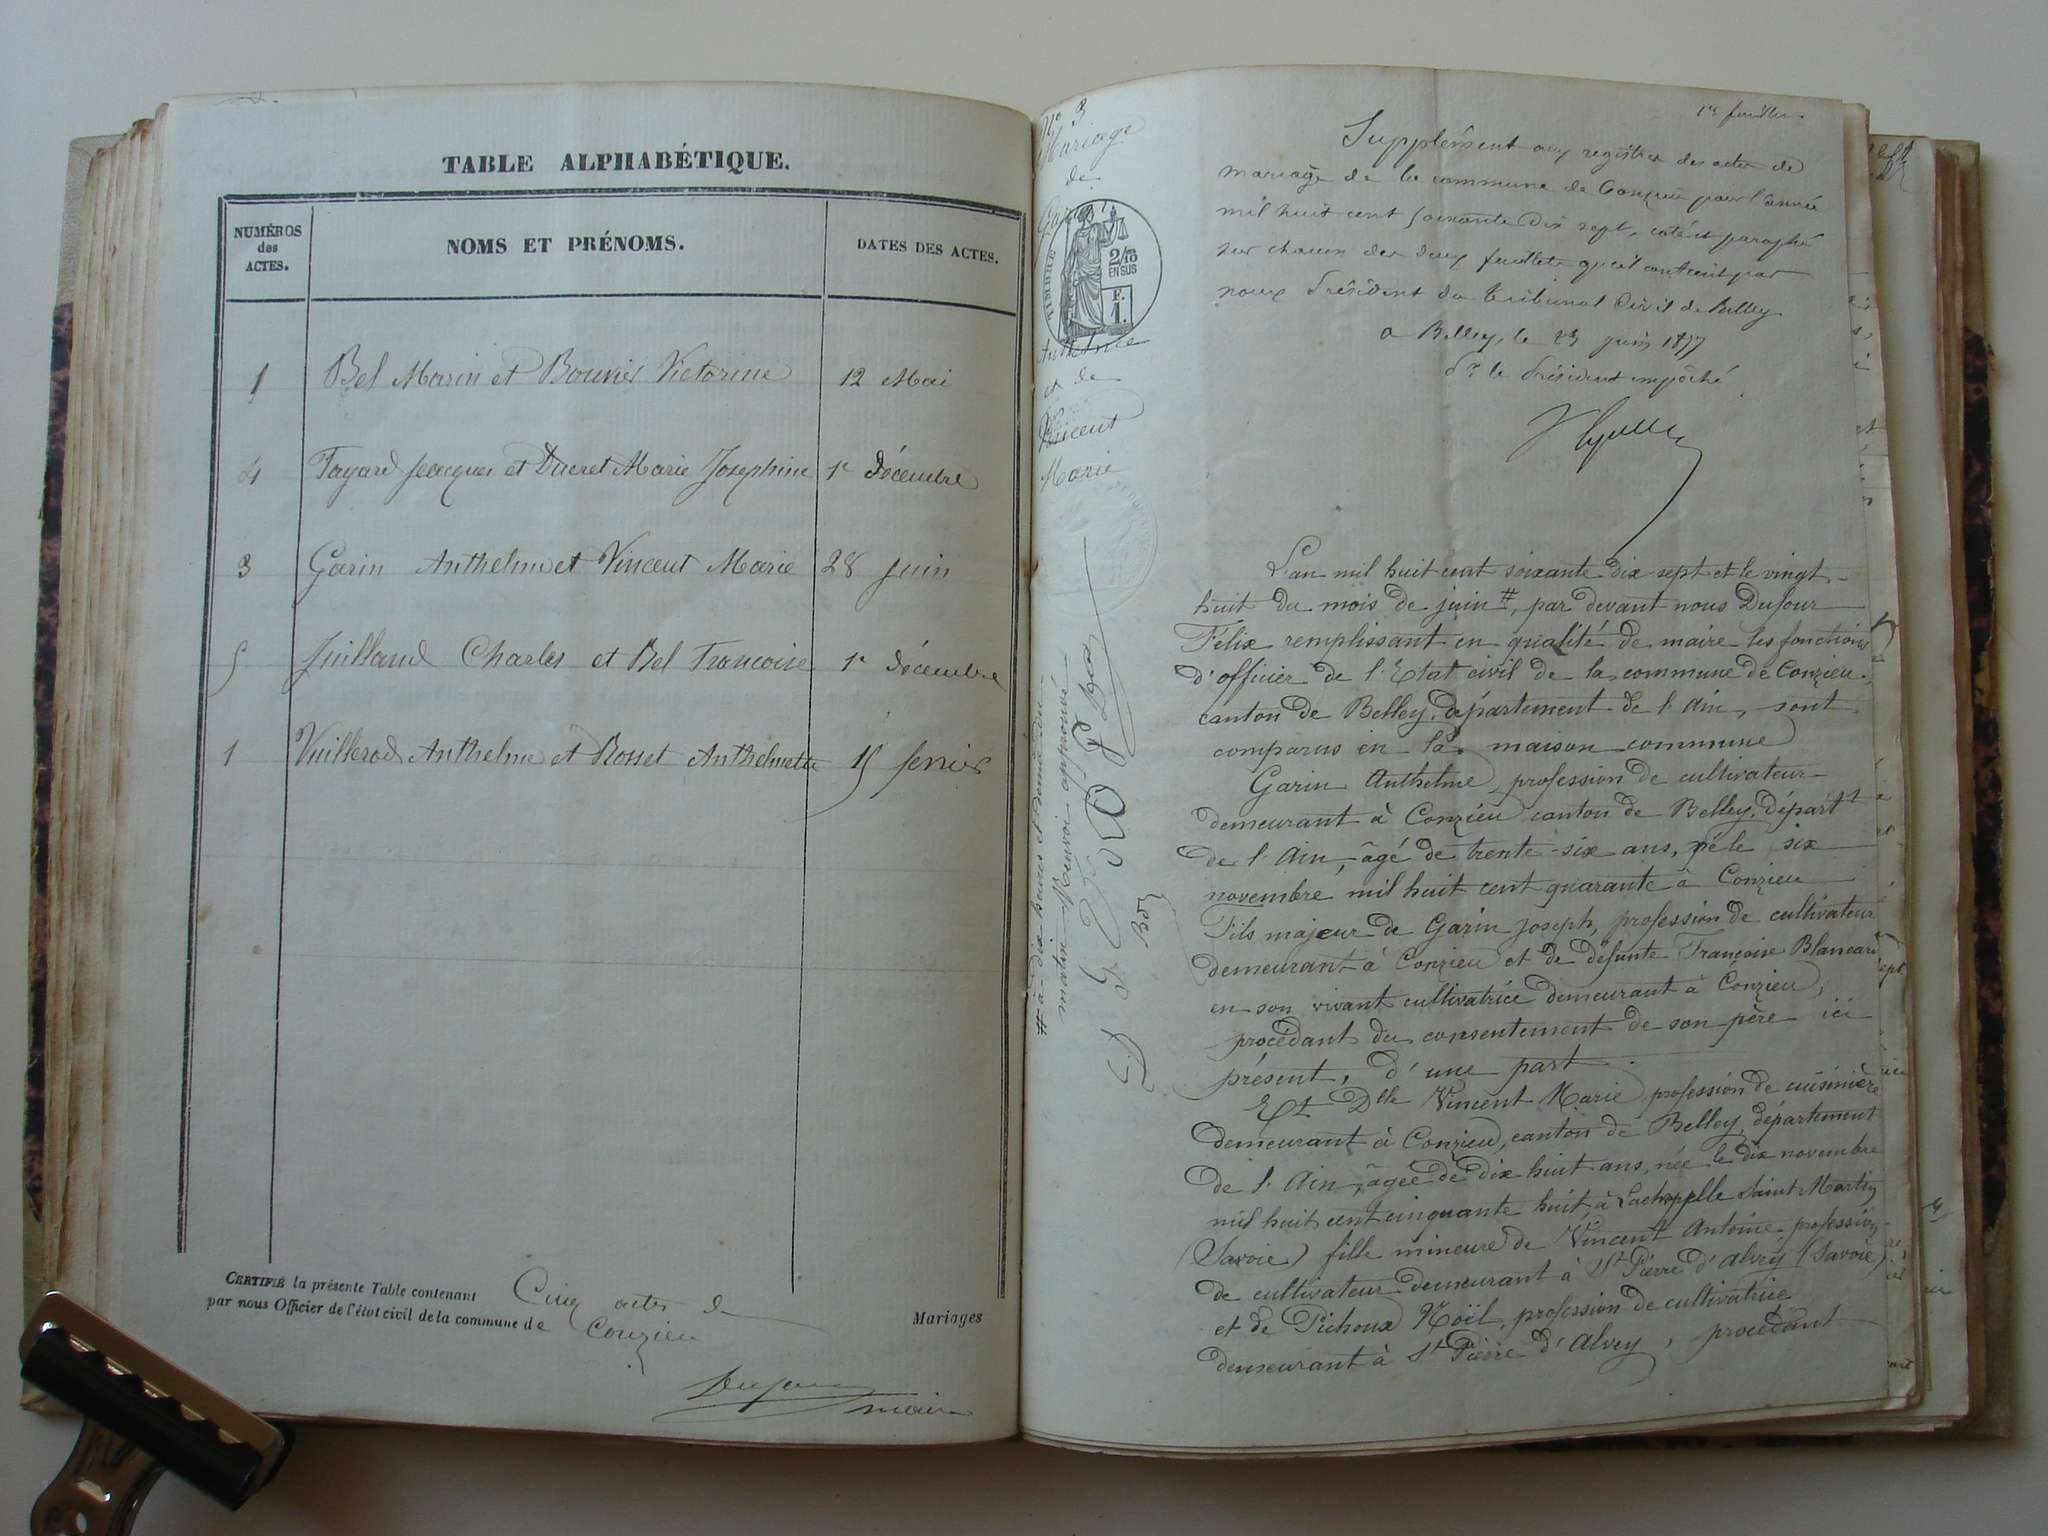 TABLE ALPHABÉTIQUE.
NUMÉROS
des
ACTES.
NOMS ET PRÉNOMS.
DATES DES ACTES.
1 Bel Marin et Bouvier Victorine 12 Mai
4 Fayard Jacques et Ducret Marie Josephine 1er Décembre
3 Garin Anthelme et Vincent Marie 28 Juin
5 Juilland Charles et Bel Francoise 1er décembre
1 Vuillerod Anthelme et Rosset Anthelmette 15 fevrier
CERTIFIÉ la présente Table contenant Cinq actes de Mariages
par nous Officier de l'état civil de la commune de Conzieu
Dufour
maire
No 3
Mariage
de
Garin
TIMBRE
2/10
EN SUS
F.
1.
Anthelme
et de
Vincent
Marie
# à dix heures et demie du
matin Renvoi approuvé
1er feuillet
Supplément aux registres des actes de
mariage de la commune de Conzieu pour l'année
mil huit cent soixante dix sept, coté et paraphé
sur chacun des deux feuillets qu'il contient par
nous Président du tribunal Civil de Belley
a Belley, le 23 juin 1877
Pr le Président empêché
L'an mil huit cent soixante dix sept et le vingt
huit du mois de juin #, par devant nous Dufour
Félix remplissant en qualité de maire les fonctions
d'officier de l'Etat civil de la commune de Conzieu,
canton de Belley, département de l'Ain, sont
comparus en la maison commune
Garin Anthelme, profession de cultivateur
demeurant à Conzieu canton de Belley, départt
de l'Ain, âgé de trente-six ans, né le six
novembre mil huit cent quarante à Conzieu
Fils majeur de Garin Joseph, profession de cultivateur
demeurant à Conzieu et de défunte Françoise Blancard
en son vivant cultivatrice demeurant à Conzieu,
procédant du consentement de son père ici
présent, d'une part.
Et Dlle Vincent Marie profession de cuisinière
demeurant à Conzieu, canton de Belley, département
de l'Ain, âgée de dix huit ans, née le dix novembre
mil huit cent cinquante huit à Lachapelle Saint Martin
(Savoie) fille mineure de Vincent Antoine profession
de cultivateur demeurant à St Pierre d'Alvey (Savoie)
et de Pichoux Noël, profession de cultivatrice
demeurant à St Pierre d'Alvey, procédant